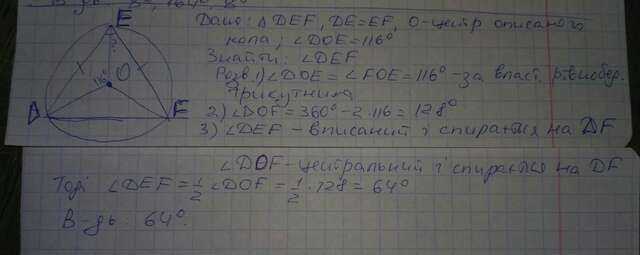 В-дь: 8°, 164°, 8°
Дано: △ DEF, DE=EF, O-центр описаного
кола; ∠DOE=116°
Знайти: ∠DEF
Розв 1) ∠DOE = ∠FOE = 116° - за власт. рівнобер.
трикутника.
2) ∠DOF = 360° - 2·116 = 128°
3) ∠DEF - вписаний і спирається на DF
∠DOF - центральний і спирається на DF
Тоді ∠DEF = 1/2 ∠DOF = 1/2 · 128 = 64°
В-дь: 64°.
E
?
116°
O
D
F